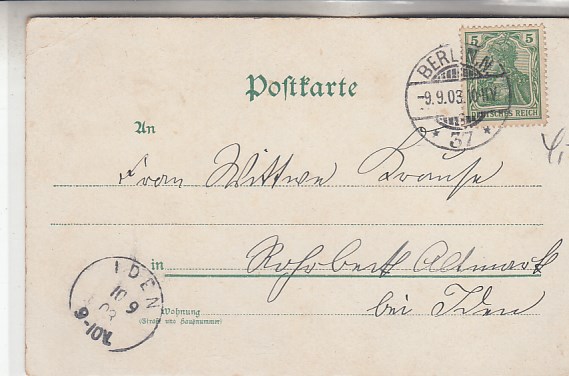 5 5
DEUTSCHES REICH
BERLIN.N.
-9.9.03.10-11V.
* 37 *
Postkarte
An
Frau Wittwe Krause
in Rohrbeck Altmark
bei Iden
Wohnung
(Straße und Hausnummer)
IDEN
10 9
03
9-10V.